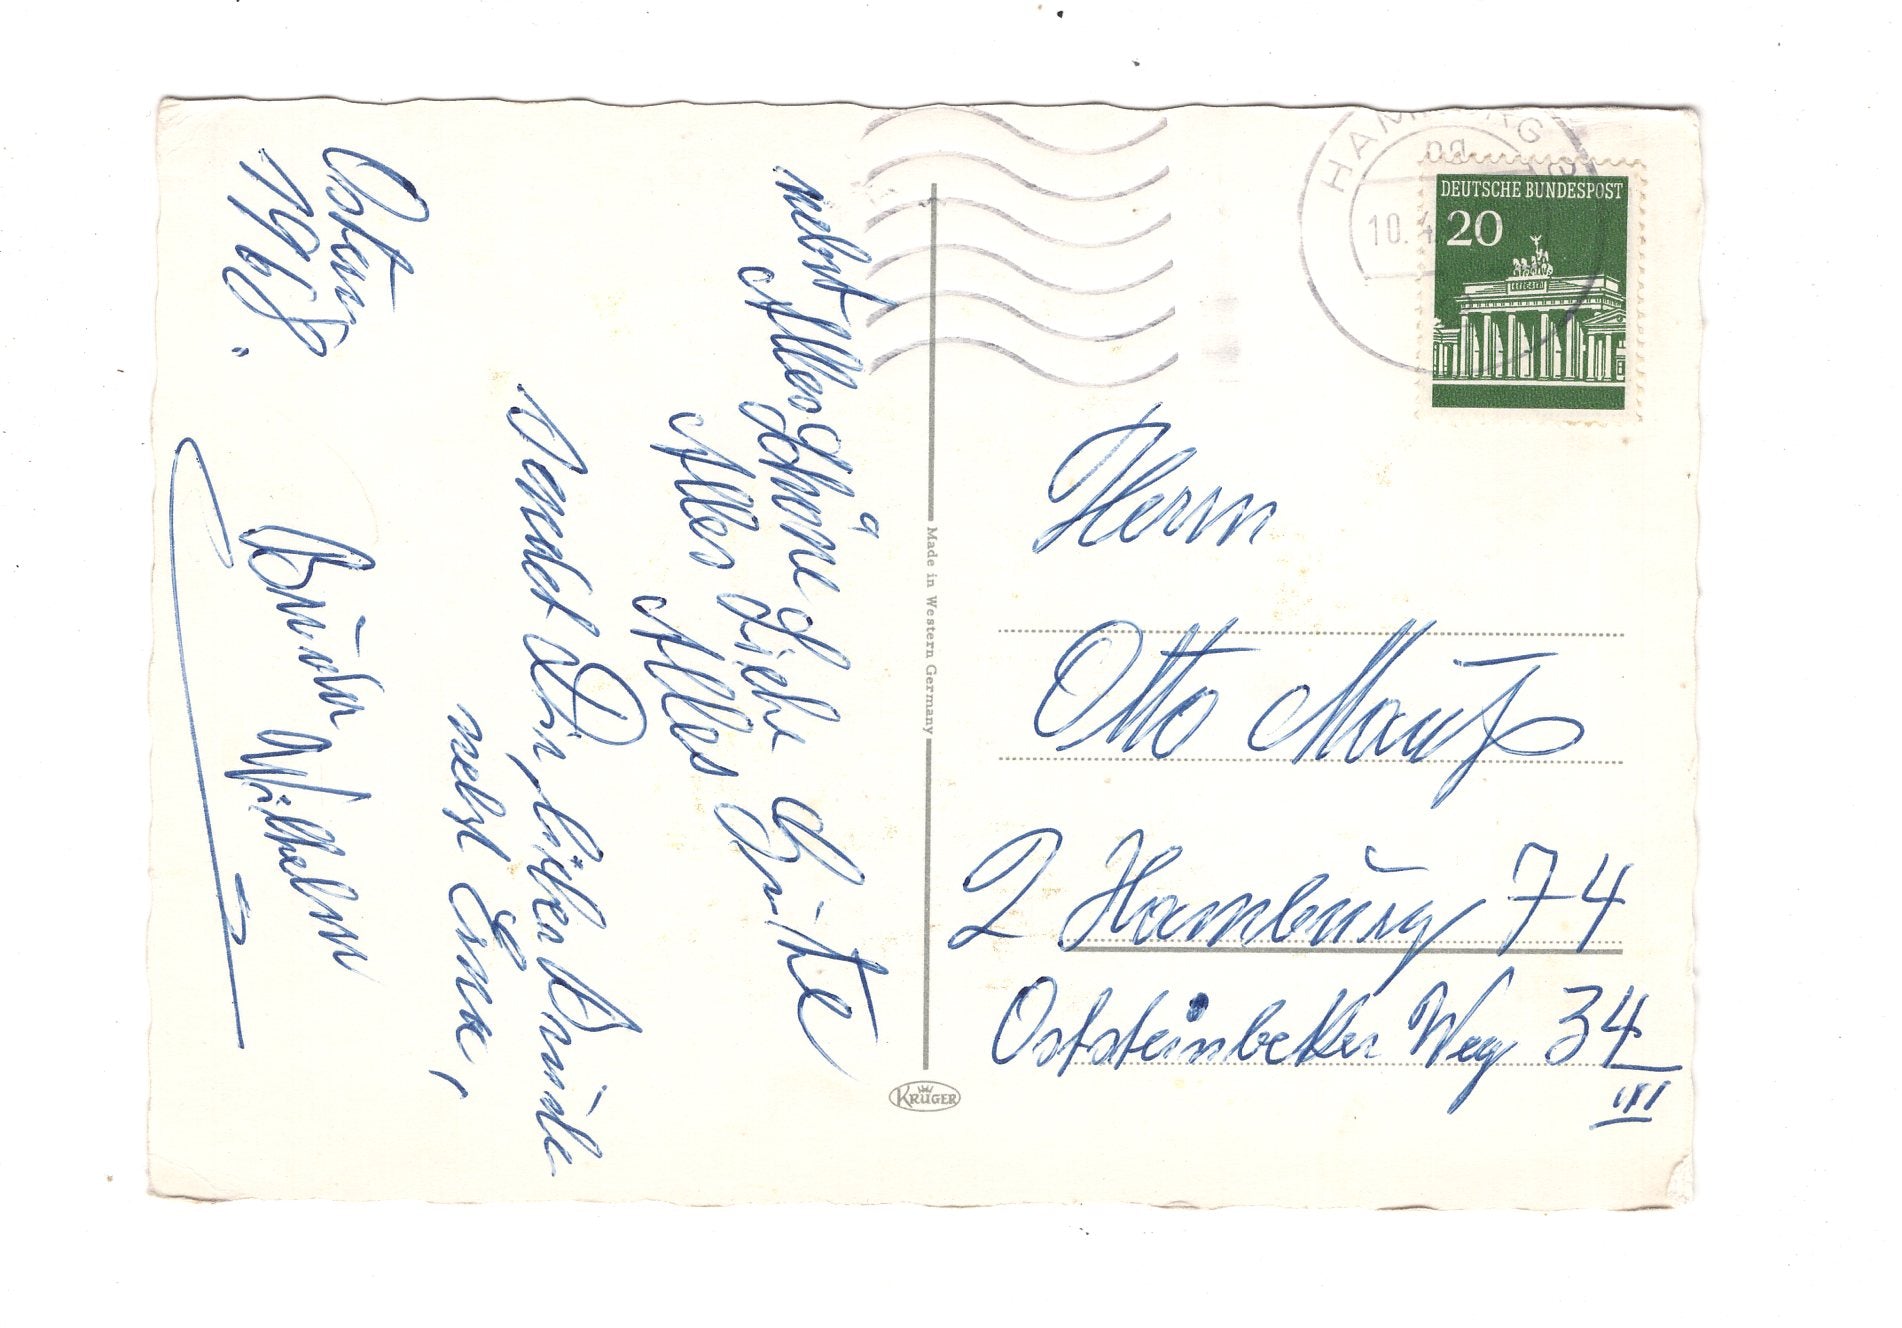 nebst
Alles Schöne
Alles Liebe
Alles Gute
sendet Dir, lieber Bruder
nebst Erna,
Ostern
1968.
Bruder Wilhelm
Made in Western Germany
KRÜGER
HAMBURG
10.4.
DEUTSCHE BUNDESPOST
20
Herrn
Otto Mautz
2 Hamburg 74
Oststeinbeker Weg 34
III